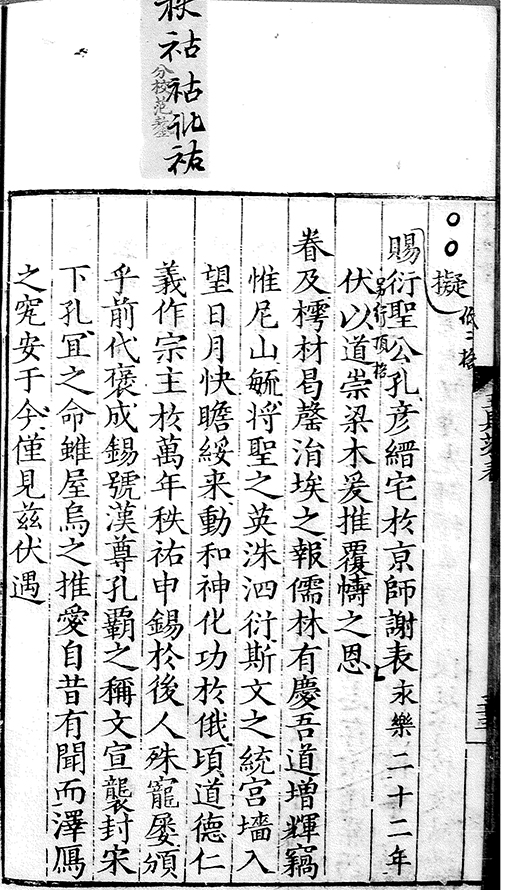 秩祜祜礽祐
分校范鏊
○○擬
低二格
賜衍聖公孔彦縉宅於京師謝表 永樂二十二年
另行頂格
伏以道崇梁木爰推覆幬之恩
眷及樗材曷罄涓埃之報儒林有慶吾道增輝竊
惟尼山毓將聖之英洙泗衍斯文之統宮墻入
望日月快瞻綏来動和神化功於俄頃道德仁
義作宗主於萬年秩祐申錫於後人殊寵屢頒
乎前代褒成錫號漢尊孔覇之稱文宣襲封宋
下孔冝之命雖屋烏之推愛自昔有聞而澤鴈
之究安于今僅見茲伏遇